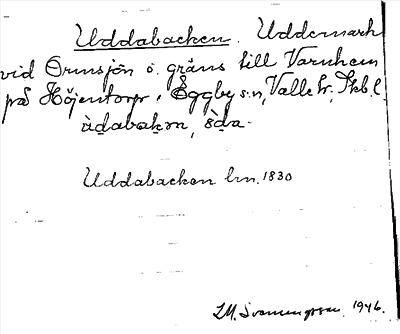 Uddabacken. Uddemark
vid Ormsjön o. gräns till Varnhem
på Höjentorp, Eggby s:n, Valle hr, Skb. l.
ùdabakən, òda-
Uddabacken lm. 1830
Svenungsson 1946.